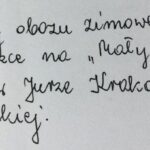 obozu zimowe
ce na „Mały
Jurze Krako
kiej.